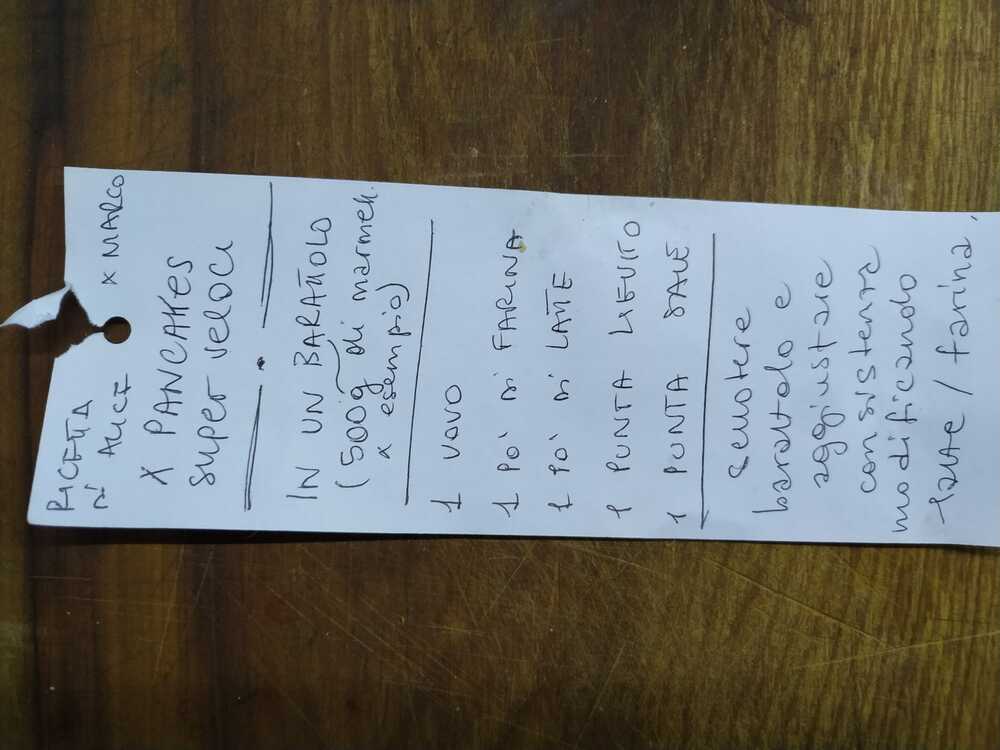 RICETTA
DI ALICE x MARCO
X PANCAKES
super veloci
IN UN BARATTOLO
(500g di marmell.
x esempio)
1 UOVO
1 PO' DI FARINA
1 PO' DI LATTE
1 PUNTA LIEVITO
1 PUNTA SALE
scuotere
barattolo e
aggiustare
consistenza
modificando
latte / farina.